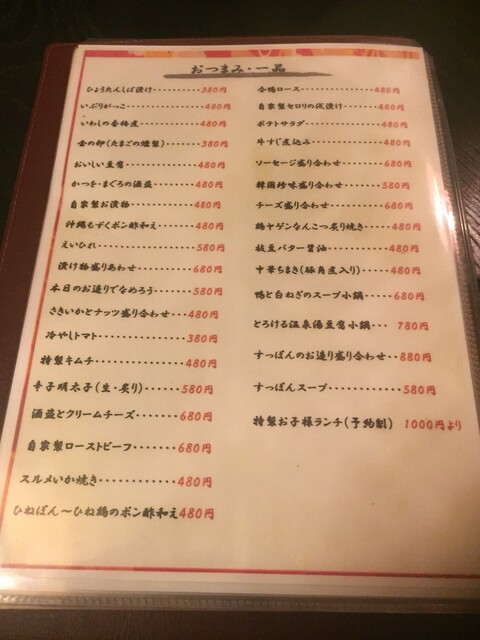 おつまみ・一品
ひょうたんしば漬け・・・・・・・・・・380円
いぶりがっこ・・・・・・・・・・・・・・480円
いわしの香梅煮・・・・・・・・・・・・480円
金の卵(たまごの燻製)・・・・・・380円
おいしい豆腐・・・・・・・・・・・・・480円
かつを・まぐろの酒盗・・・・・・・480円
自家製お漬物・・・・・・・・・・・・480円
沖縄もずくポン酢和え・・・・・・480円
えいひれ・・・・・・・・・・・・・・・・580円
漬け物盛りあわせ・・・・・・・・・680円
本日のお造りでなめろう・・・・・580円
さきいかとナッツ盛り合わせ・・・480円
冷やしトマト・・・・・・・・・・・・・380円
特製キムチ・・・・・・・・・・・・・・480円
辛子明太子(生・炙り)・・・・・580円
酒盗とクリームチーズ・・・・・・・680円
自家製ローストビーフ・・・・・・・680円
スルメいか焼き・・・・・・・・・・・・480円
ひねぽん～ひね鶏のポン酢和え480円
合鴨ロース・・・・・・・・・・・・・・480円
自家製セロリの浅漬け・・・・・・480円
ポテトサラダ・・・・・・・・・・・・・480円
牛すじ煮込み・・・・・・・・・・・・480円
ソーセージ盛り合わせ・・・・・・680円
韓国珍味盛り合わせ・・・・・・・580円
チーズ盛り合わせ・・・・・・・・・680円
鶏ヤゲンなんこつ炙り焼き・・・・480円
枝豆バター醤油・・・・・・・・・・480円
中華ちまき(豚角煮入り)・・・・480円
鴨と白ねぎのスープ小鍋・・・・・680円
とろける温泉湯豆腐小鍋・・・ 780円
すっぽんのお造り盛り合わせ・・880円
すっぽんスープ・・・・・・・・・・・580円
特製お子様ランチ(予約制) 1000円より